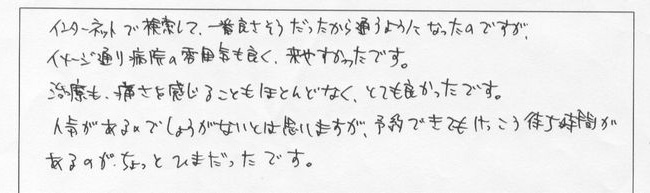 インターネットで検索して、一番良さそうだったから通うようになったのですが、
イメージ通り病院の雰囲気も良く、来やすかったです。
治療も、痛さを感じることもほとんどなく、とても良かったです。
人気があるのでしょうがないとは思いますが、予約できてもけっこう待ち時間が
あるのが、ちょっとひまだったです。